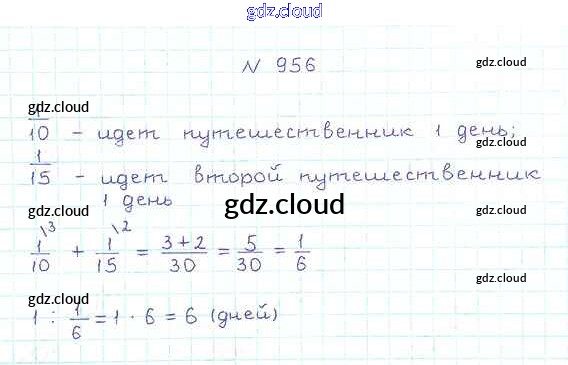 gdz.cloud
N 956 gdz.cloud
gdz.cloud
1/10 - идет путешественник 1 день;
1/15 - идет второй путешественник
1 день gdz.cloud gdz.cloud
\3 \2
1/10 + 1/15 = 3+2/30 = 5/30 = 1/6
gdz.cloud gdz.cloud
1 : 1/6 = 1 · 6 = 6 (дней)
gdz.cloud